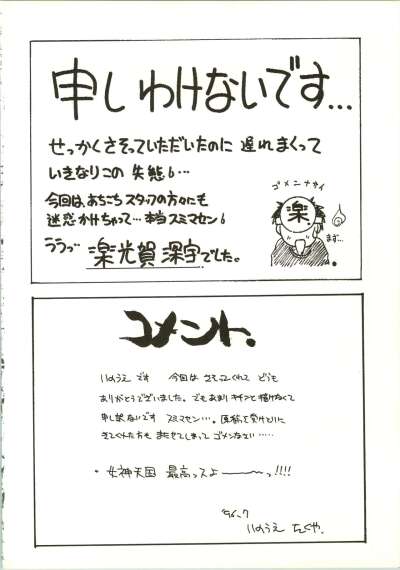 申しわけないです…
せっかくさそっていただいたのに 遅れまくって
いきなりこの 失態!…
今回は、あちこち スタッフの方々にも
迷惑かけちゃって… 本当スミマセン!
ゴメンナサイ
楽
まず…
ララっ… 楽光賀 深宇でした。
コメント.
いのうえ です 今回は さそってくれて どうも
ありがとうございました。でもあまり チャンと描けなくて
申し訳ないです スミマセン…。原稿を受けとりに
きてくれた方も またせてしまって ゴメンなさい……
・女神天国 最高っスよ〜〜〜っ!!!!
'96.7
いのうえ たくや.